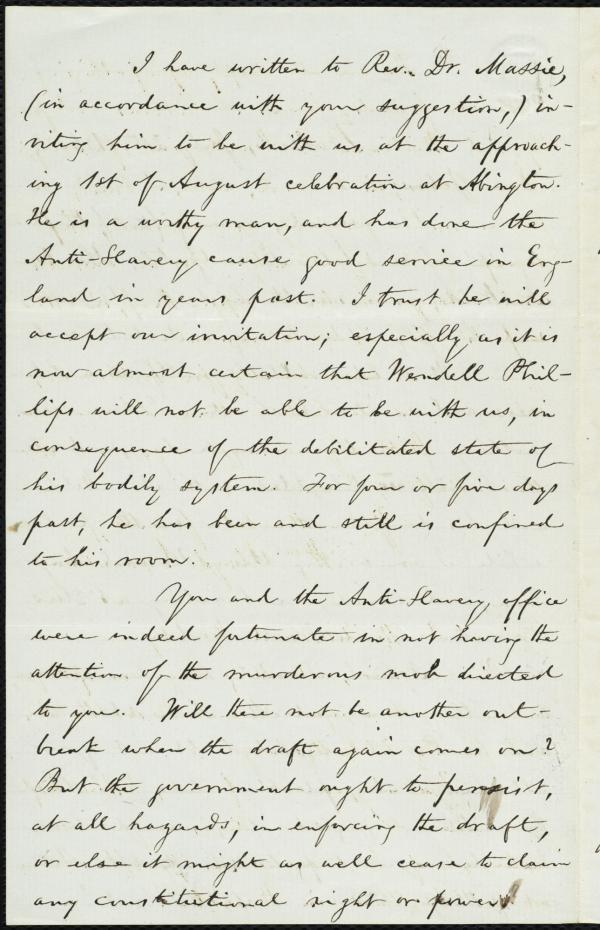 I have written to Rev. Dr. Massie,
(in accordance with your suggestion,) in-
viting him to be with us at the approach-
ing 1st of August celebration at Abington.
He is a worthy man, and has done the
Anti-Slavery cause good service in Eng-
land in years past. I trust he will
accept our invitation; especially as it is
now almost certain that Wendell Phil-
lips will not be able to be with us, in
consequence of the debilitated state of
his bodily system. For four or five days
past, he has been and still is confined
to his room.
You and the Anti-Slavery office
were indeed fortunate in not having the
attention of the murderous mob directed
to you. Will there not be another out-
break when the draft again comes on?
But the government ought to persist,
at all hazards, in enforcing the draft,
or else it might as well cease to claim
any constitutional right or power.